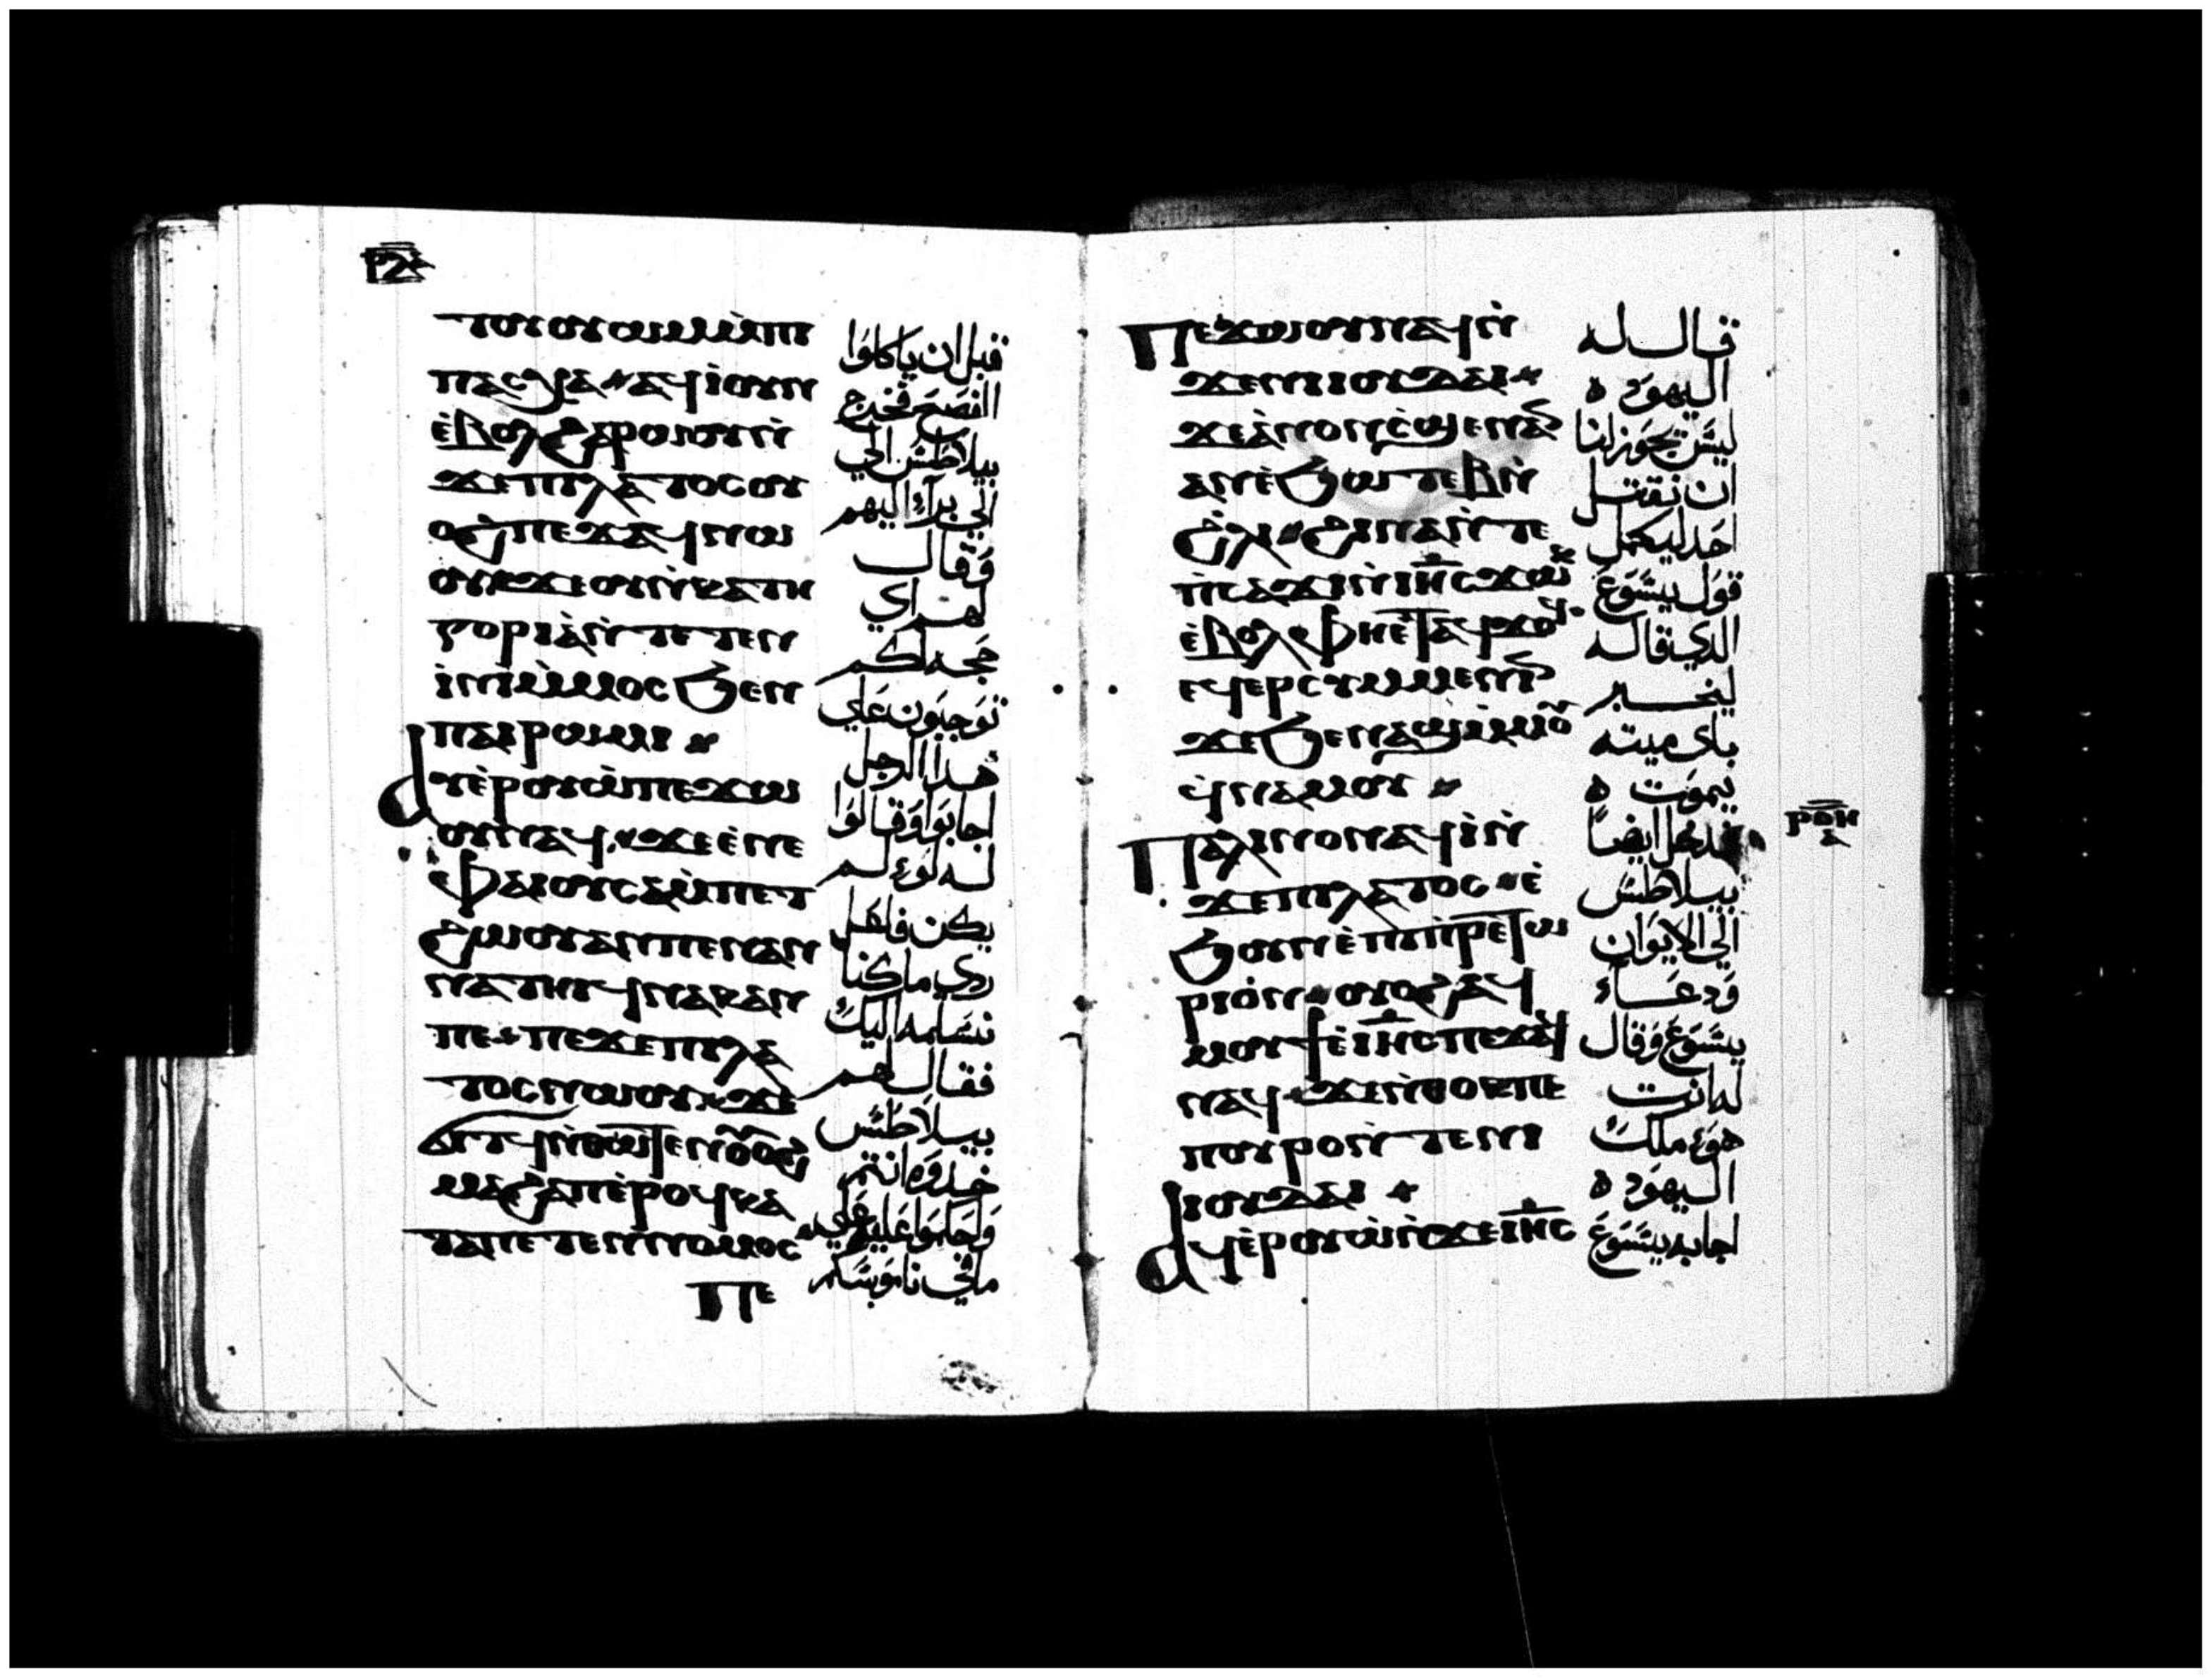 ⲣⲝ
ⲧⲟⲩⲟⲩⲱⲙ ⲙ̀ⲡⲓ
ⲡⲁⲥⲭⲁ ⲁϥⲓ̀ ⲟⲩⲛ
ⲉ̀ⲃⲟⲗ ϩⲁⲣⲱⲟⲩ ⲛ̀
ϫⲉⲡⲓⲗⲁⲧⲟⲥ ⲟⲩ
ⲟϩ ⲡⲉϫⲁϥ ⲛⲱ
ⲟⲩ ϫⲉ ⲟⲩ ⲛ̀ⲕⲁⲧⲏ
ⲅⲟⲣⲓⲁ̀ ⲛ̀ⲧⲉⲧⲉⲛ
ⲓⲛⲓ ⲙ̀ⲙⲟⲥ ϧⲉⲛ
ⲡⲁⲓⲣⲱⲙⲓ
ⲁⲩⲉ̀ⲣⲟⲩⲱ̀ ⲡⲉϫⲱ
ⲟⲩ ⲛⲁϥ ϫⲉ ⲉ̀ⲛⲉ
ⲫⲁⲓ ⲟⲩⲥⲁⲙ̀ⲡⲉⲧ
ϩⲱⲟⲩ ⲁⲛ ⲡⲉ ⲛⲁⲛ
ⲛⲁⲧⲏⲓϥ ⲛⲁⲕ ⲁⲛ
ⲡⲉ ⲡⲉϫⲉ ⲡⲓⲗⲁ
ⲧⲟⲥ ⲛⲱⲟⲩ ϫⲉ
ⲙⲁϩⲁⲡ ⲉ̀ⲣⲟϥ ⲕⲁ
ⲧⲁ ⲡⲉⲧⲉⲛⲛⲟⲙⲟⲥ
ⲡⲉ
قبل ان ياكلوا
الفصح فخرج
بيلاطس الي
الي براء اليهم
وقال
لهم اي
حجه لكم
توجبون علي
هدا الرجل
اجابوا وقالوا
له لوء لم
يكن فاعل
ردي ما كنا
نسلمه اليك
فقال لهم
بيلاطس
خدوه انتم
واحكموا عليه علي
مافي ناموسكم
ⲡⲉϫⲱⲟⲩ ⲛⲁϥ ⲛ̀
ϫⲉ ⲛⲓⲓⲟⲩⲇⲁⲓ
ϫⲉ ⲁ̀ⲛⲟⲛ ⲥ̀ϣⲉ ⲛⲁⲛ
ⲁⲛ ⲉ̀ϧⲱⲧⲉⲃ ⲛ̀
ϩ̀ⲗⲓ ϩⲓⲛⲁ ⲛ̀ⲧⲉ
ⲡ̀ⲥⲁϫⲓ ⲛ̀ⲓⲏⲥ ϫⲱⲕ
ⲉ̀ⲃⲟⲗ ⲫⲏⲉ̀ⲧⲁϥϫⲟϥ
ⲉϥⲉⲣⲥⲩⲙⲙⲉⲛⲓⲛ
ϫⲉ ϧⲉⲛ ⲁϣ ⲙ̀ⲙⲟⲩ
ϥ̀ⲛⲁⲙⲟⲩ
ⲡⲁⲗⲓⲛ ⲟⲛ ⲁϥⲓ̀ ⲛ̀
ϫⲉ ⲡⲓⲗⲁⲧⲟⲥ ⲉ̀
ϧⲟⲩⲛ ⲉ̀ⲡⲓⲡⲣⲉⲧⲱ
ⲣⲓⲟ̀ⲛ ⲟⲩⲟϩ ⲁϥ
ⲙⲟⲩϯ ⲉ̀ⲓⲏⲥ ⲡⲉϫⲁϥ
ⲛⲁϥ ϫⲉ ⲛ̀ⲑⲟⲕ ⲡⲉ
ⲡⲟⲩⲣⲟ ⲛ̀ⲧⲉ ⲛⲓ
ⲓⲟⲩⲇⲁⲓ
ⲁϥⲉ̀ⲣⲟⲩⲱ̀ ⲛ̀ϫⲉ ⲓⲏⲥ
قال له
اليهود ه
ليس يجوز لنا
ان نقتل
احد ليكمل
قول يسوع
الدي قاله
ليخبر
باى ميته
يموت ه
فدخل ايضا
بيلاطس
الي الايوان
ودعاء
يسوع وقال
له انت
هوء ملك
اليهود ه
اجابه يسوع
ⲣⲟⲏ
ⲁ